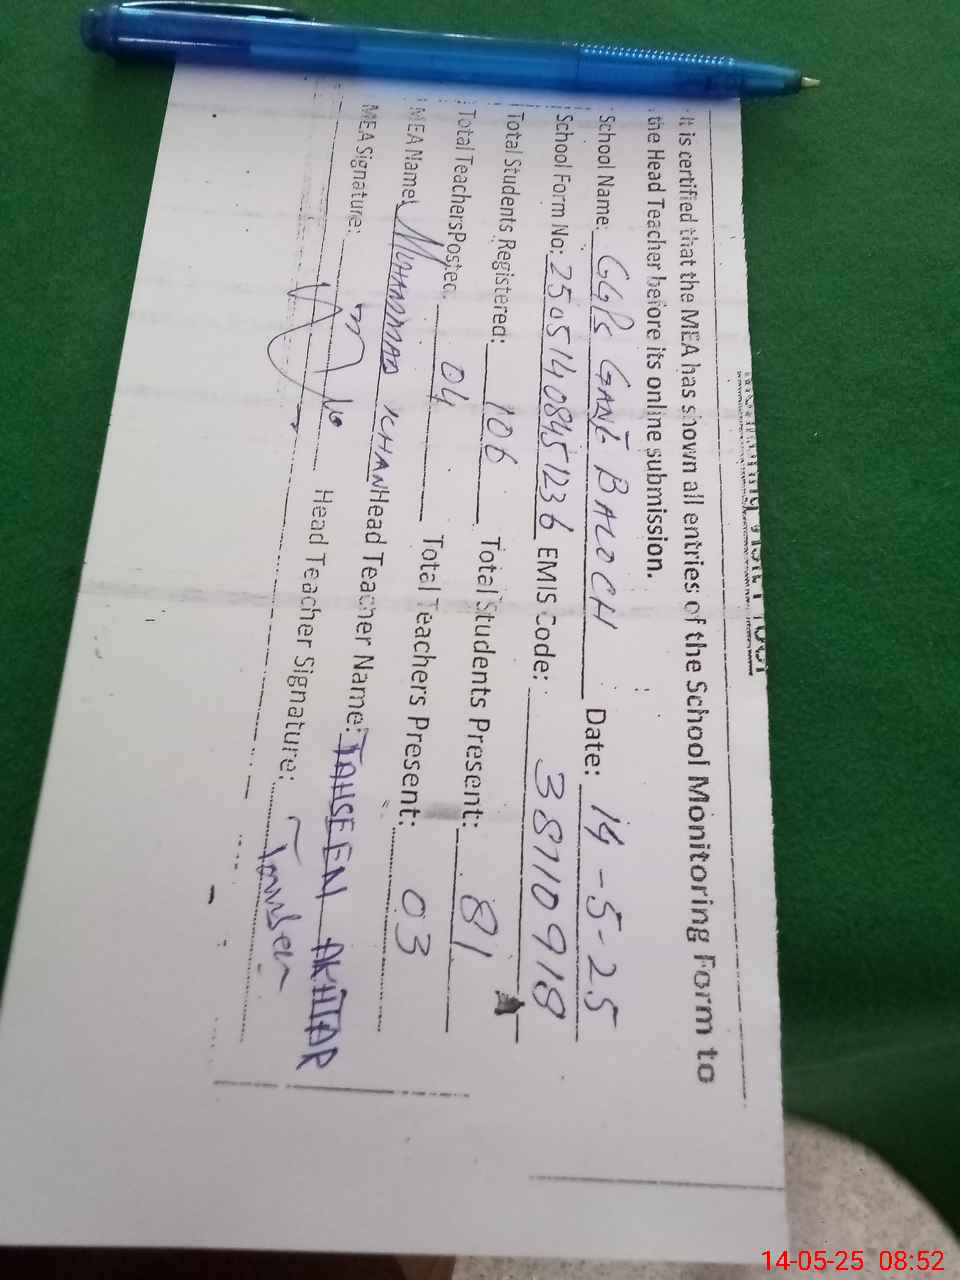 It is certified that the MEA has shown all entries of the School Monitoring Form to
the Head Teacher before its online submission.
School Name: GGPS GANG BALOCH Date: 14-5-25
School Form No: 25051408451236 EMIS Code: 38710918
Total Students Registered: 106 Total Students Present: 81
Total Teachers Posted 04 Total Teachers Present: 03
MEA Name: MUHAMMAD KHAN Head Teacher Name: TAHSEEN AKHTAR
MEA Signature: Head Teacher Signature: Tahseen
14-05-25 08:52